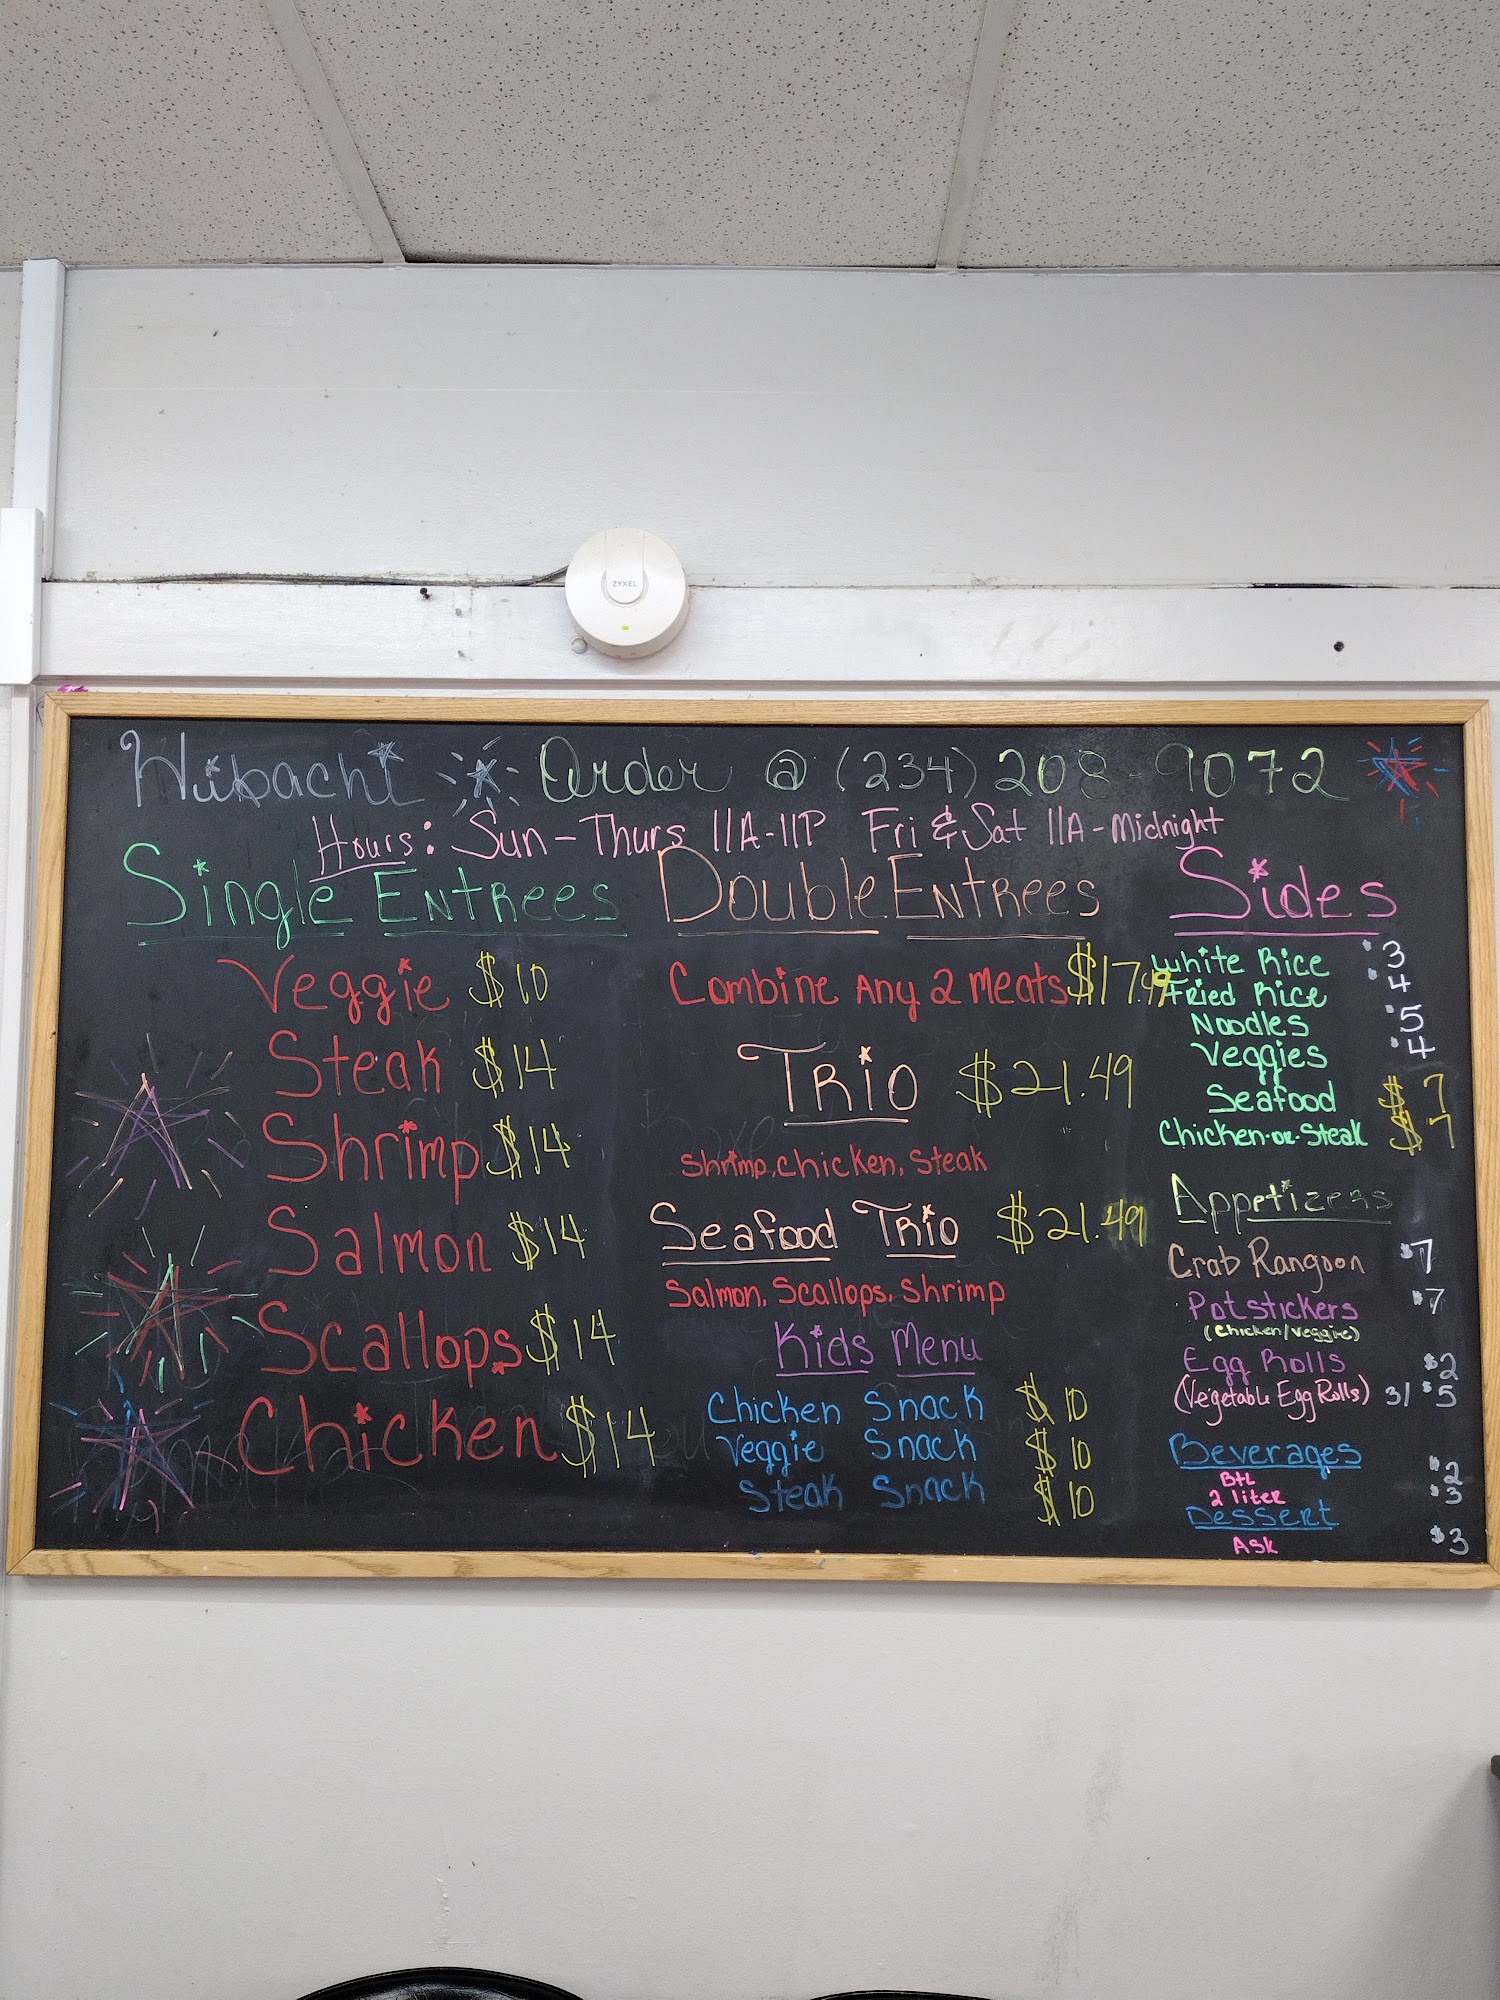 ZYXEL
Hibachi Order @ (234) 208-9072
Hours: Sun-Thurs 11A-11P Fri & Sat 11A-Midnight
Single Entrees
Veggie $10
Steak $14
Shrimp $14
Salmon $14
Scallops $14
Chicken $14
Double Entrees
Combine Any 2 Meats $17.49
Trio $21.49
Shrimp, Chicken, Steak
Seafood Trio $21.49
Salmon, Scallops, Shrimp
Kids Menu
Chicken Snack $10
Veggie Snack $10
Steak Snack $10
Sides
White Rice $3
Fried Rice $4
Noodles $5
Veggies $4
Seafood $7
Chicken-or-Steak $7
Appetizers
Crab Rangoon $7
Potstickers $7
(Chicken/Veggie)
Egg Rolls $2
(Vegetable Egg Rolls) 3/$5
Beverages
Btl $2
2 liter $3
Dessert
Ask $3